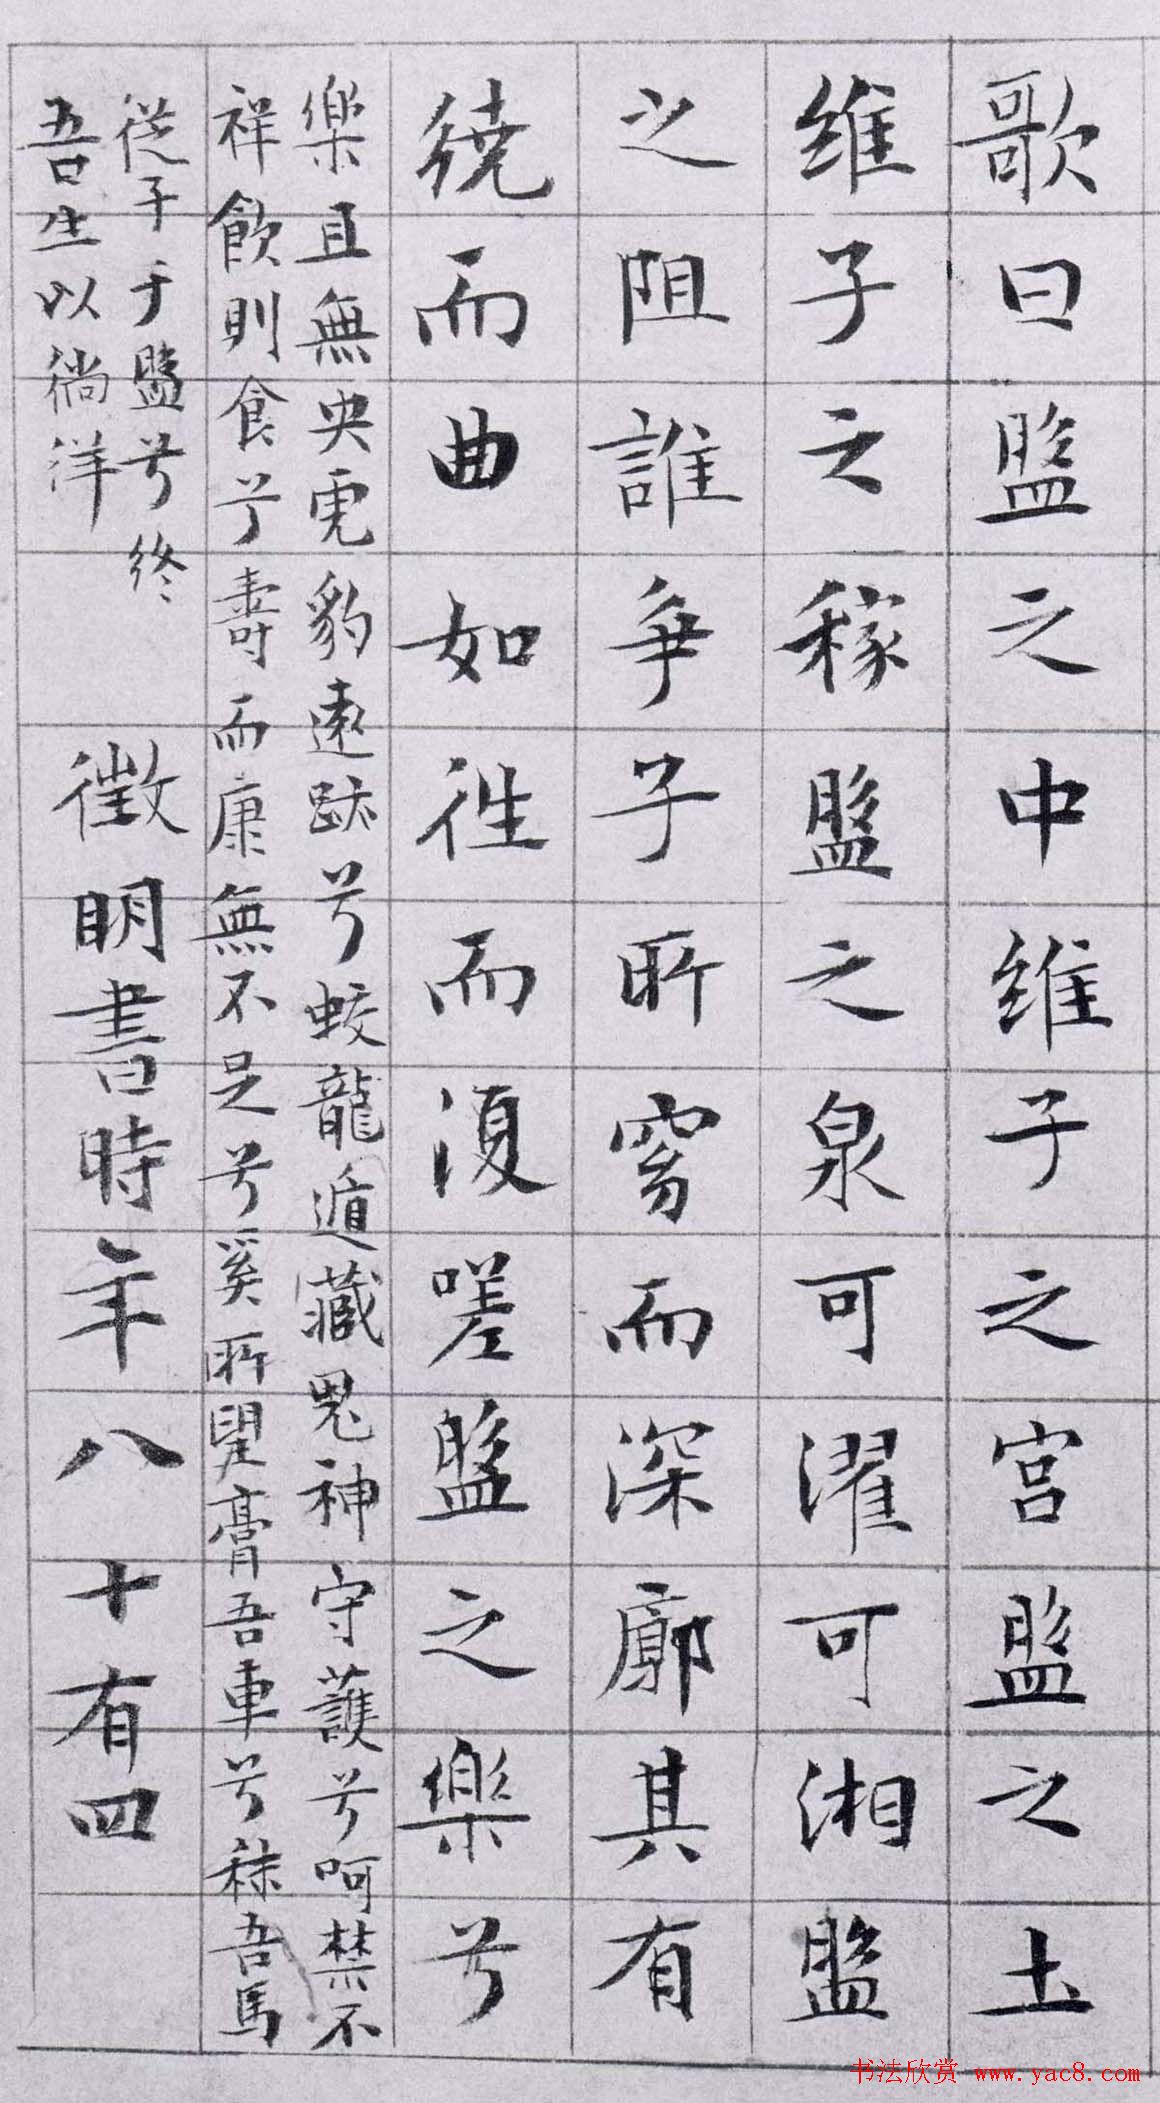 歌曰盤之中維子之宮盤之土
維子之稼盤之泉可濯可湘盤
之阻誰爭子所窈而深廓其有
繞而曲如往而復嗟盤之樂兮
樂且無央虎豹遠跡兮蛟龍遁藏鬼神守護兮呵禁不
祥飲則食兮壽而康無不足兮奚所望膏吾車兮秣吾馬
從子于盤兮終
吾生以徜洋
徵明書時年八十有四
书法欣赏 www.yac8.com